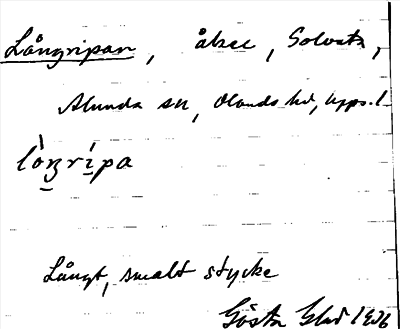 Långripan, åker, Solvesta,
Alunda sn, Olands hd, Upps. l.
lòŋrípa
Långt, smalt stycke
Gösta